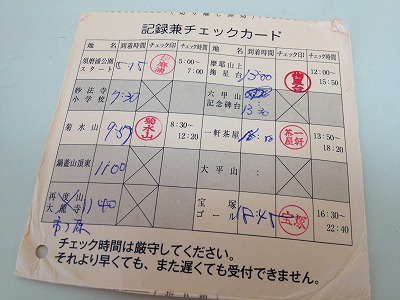 記録兼チェックカード
地名 到着時間 チェック印 チェック時間
須磨浦公園 スタート 5:15 須磨浦 5:00～7:00
妙法寺小学校 7:30
菊水山 9:57 菊水山 8:30～12:20
鍋蓋山頂東 11:00
再度山 大龍寺 11:40
市ヶ原
地名 到着時間 チェック印 チェック時間
摩耶山上 掬星台 13:00 掬星台 12:00～15:50
六甲山 記念碑台 13:30
一軒茶屋 一軒茶屋 13:50～18:20
大平山 :
宝塚 ゴール 18:45 宝塚 16:30～22:40
チェック時間は厳守してください。
それより早くても、また遅くても受付できません。